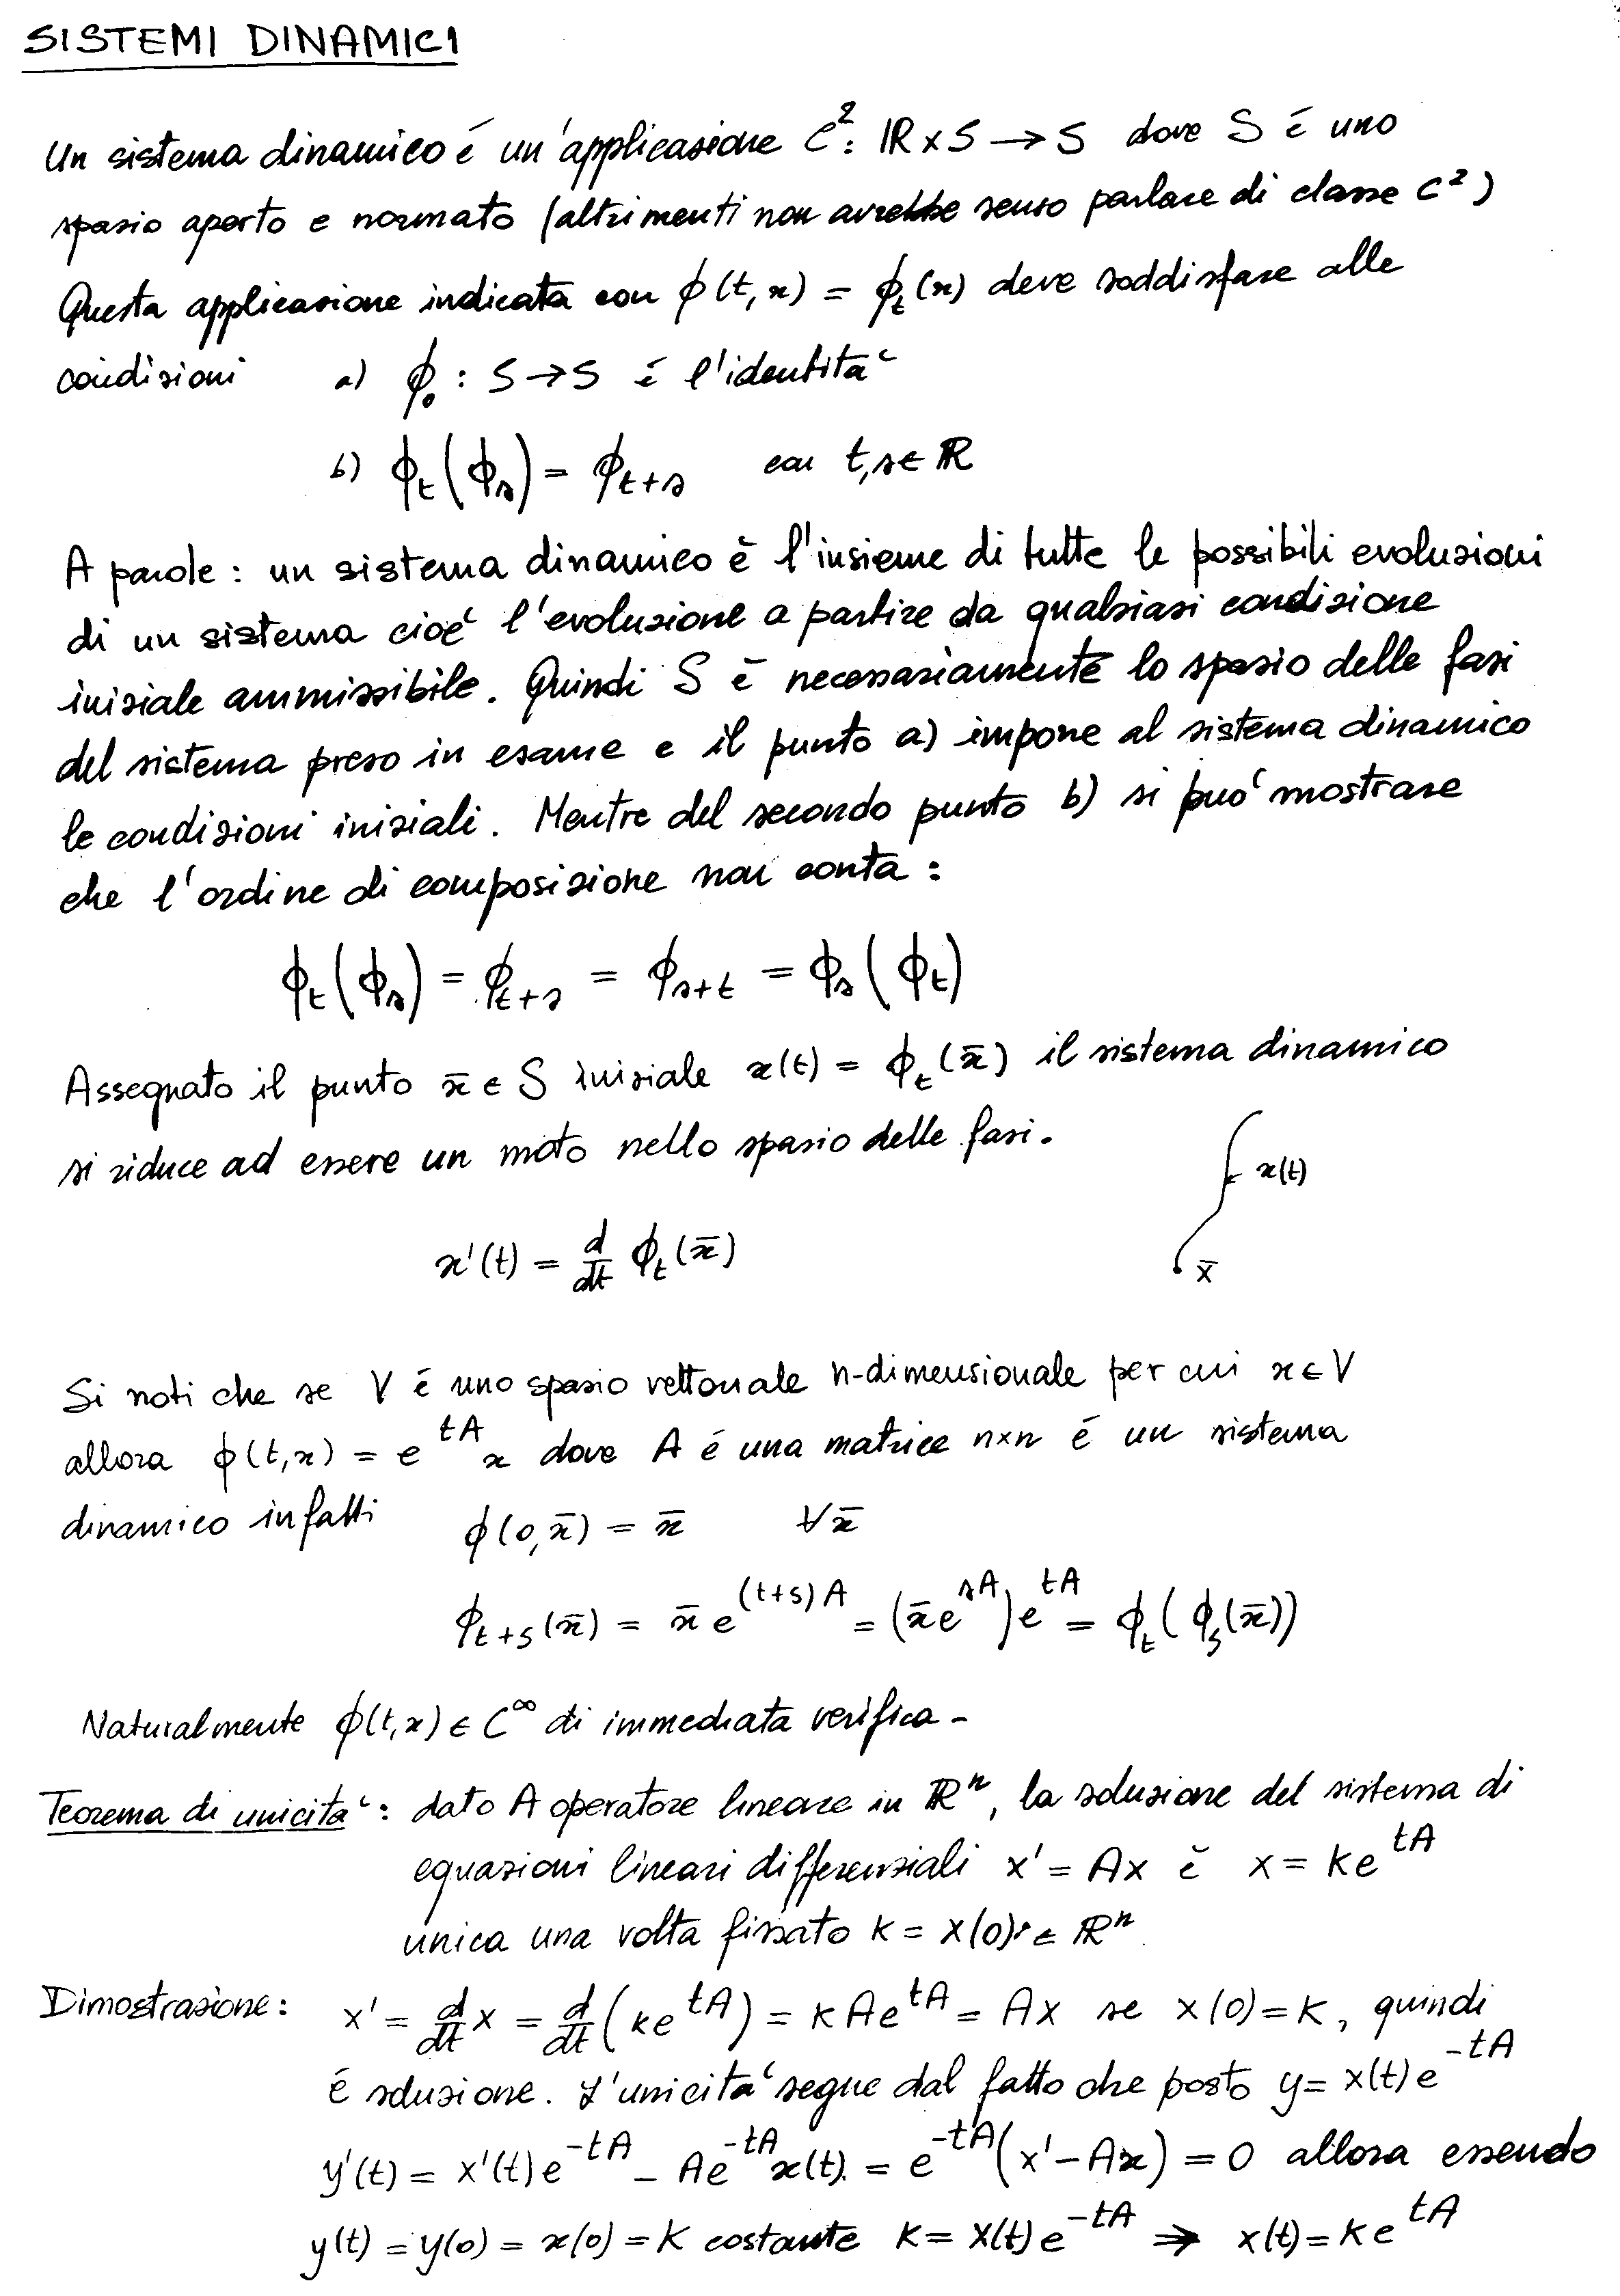 SISTEMI DINAMICI
Un sistema dinamico é un'applicazione C²: ℝ x S → S dove S é uno
spazio aperto e normato (altrimenti non avrebbe senso parlare di classe C²)
Questa applicazione indicata con ϕ(t,x) = ϕ_t(x) deve soddisfare alle
condizioni a) ϕ_0 : S → S é l'identita'
b) ϕ_t(ϕ_s) = ϕ_{t+s} con t,s ∈ ℝ
A parole : un sistema dinamico è l'insieme di tutte le possibili evoluzioni
di un sistema cioe' l'evoluzione a partire da qualsiasi condizione
iniziale ammissibile. Quindi S é necessariamente lo spazio delle fasi
del sistema preso in esame e il punto a) impone al sistema dinamico
le condizioni iniziali. Mentre del secondo punto b) si puo' mostrare
che l'ordine di composizione non conta :
ϕ_t(ϕ_s) = ϕ_{t+s} = ϕ_{s+t} = ϕ_s(ϕ_t)
Assegnato il punto x̄ ∈ S iniziale x(t) = ϕ_t(x̄) il sistema dinamico
si riduce ad essere un moto nello spazio delle fasi.
x(t)
x̄
x'(t) = d/dt ϕ_t(x̄)
Si noti che se V é uno spazio vettoriale n-dimensionale per cui x ∈ V
allora ϕ(t,x) = e^{tA} x dove A é una matrice n×n é un sistema
dinamico infatti ϕ(0,x̄) = x̄ ∀x̄
ϕ_{t+s}(x̄) = x̄ e^{(t+s)A} = (x̄ e^{sA}) e^{tA} = ϕ_t(ϕ_s(x̄))
Naturalmente ϕ(t,x) ∈ C^∞ di immediata verifica -
Teorema di unicita' : dato A operatore lineare in ℝⁿ, la soluzione del sistema di
equazioni lineari differenziali x' = Ax è x = ke^{tA}
unica una volta fissato k = x(0) ∈ ℝⁿ
Dimostrazione : x' = d/dt x = d/dt (ke^{tA}) = kAe^{tA} = Ax se x(0) = k, quindi
é soluzione. L'unicita' segue dal fatto che posto y = x(t)e^{-tA}
y'(t) = x'(t)e^{-tA} - Ae^{-tA}x(t) = e^{-tA}(x' - Ax) = 0 allora essendo
y(t) = y(0) = x(0) = k costante k = x(t)e^{-tA} ⇒ x(t) = ke^{tA}